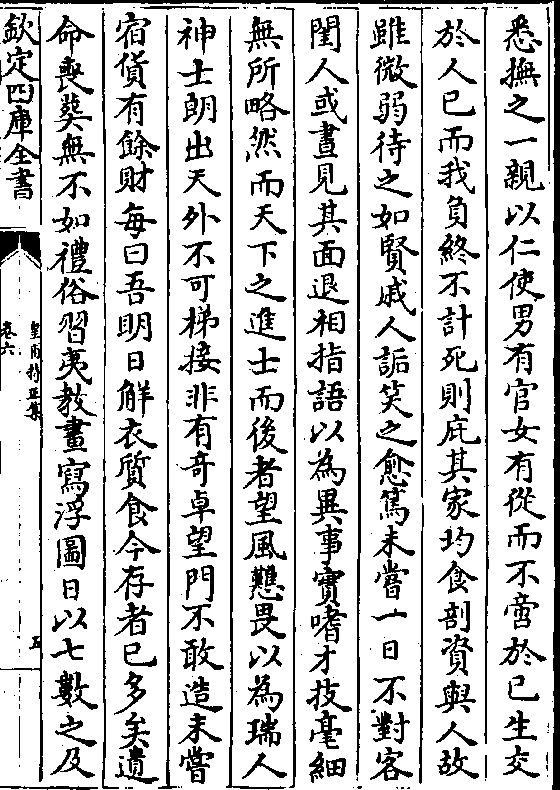 悉撫之一親以仁使男有官女有從而不啻於已生交
於人已而我負終不計死則庇其家均食剖資與人故
雖微弱待之如賢戚人詬笑之愈篤未嘗一日不對客
閨人或晝見其面退相指語以為異事實嗜才技毫細
無所略然而天下之進士而後者望風戁畏以為瑞人
神士朗出天外不可梯接非有竒卓望門不敢造未嘗
宿貨有餘財每曰吾明日解衣質食今存者已多矣遺
命喪葬無不如禮俗習夷教畫寫浮圖日以七數之及
欽定四庫全書
皇甫持正集
卷六
五